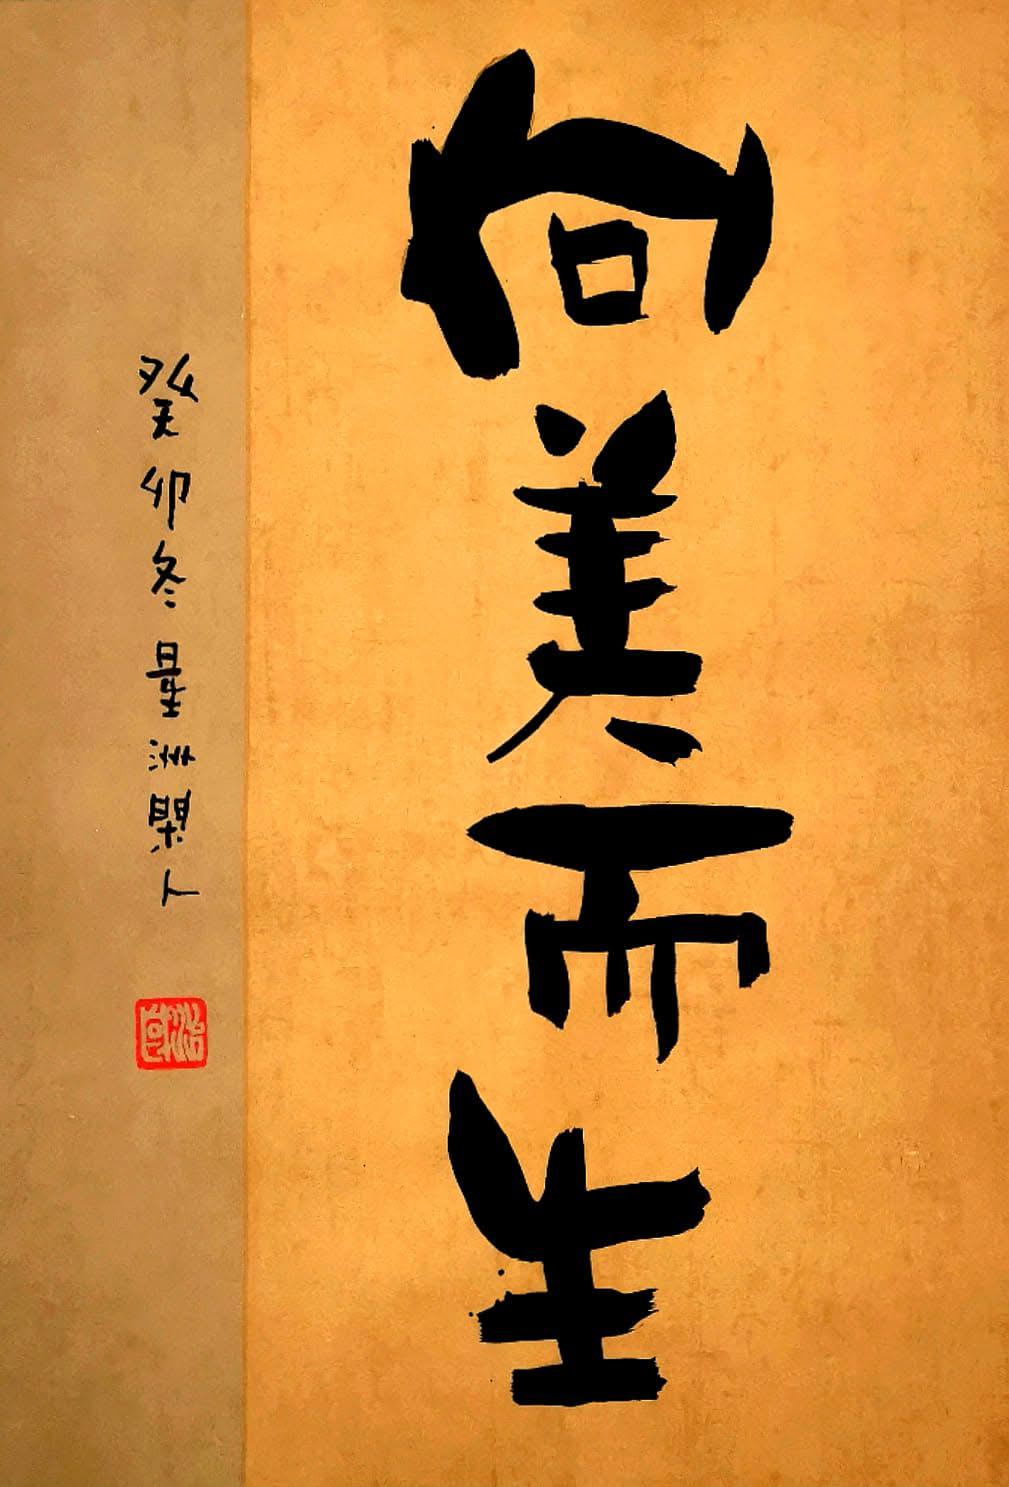 向美而生
癸卯冬星洲閑人